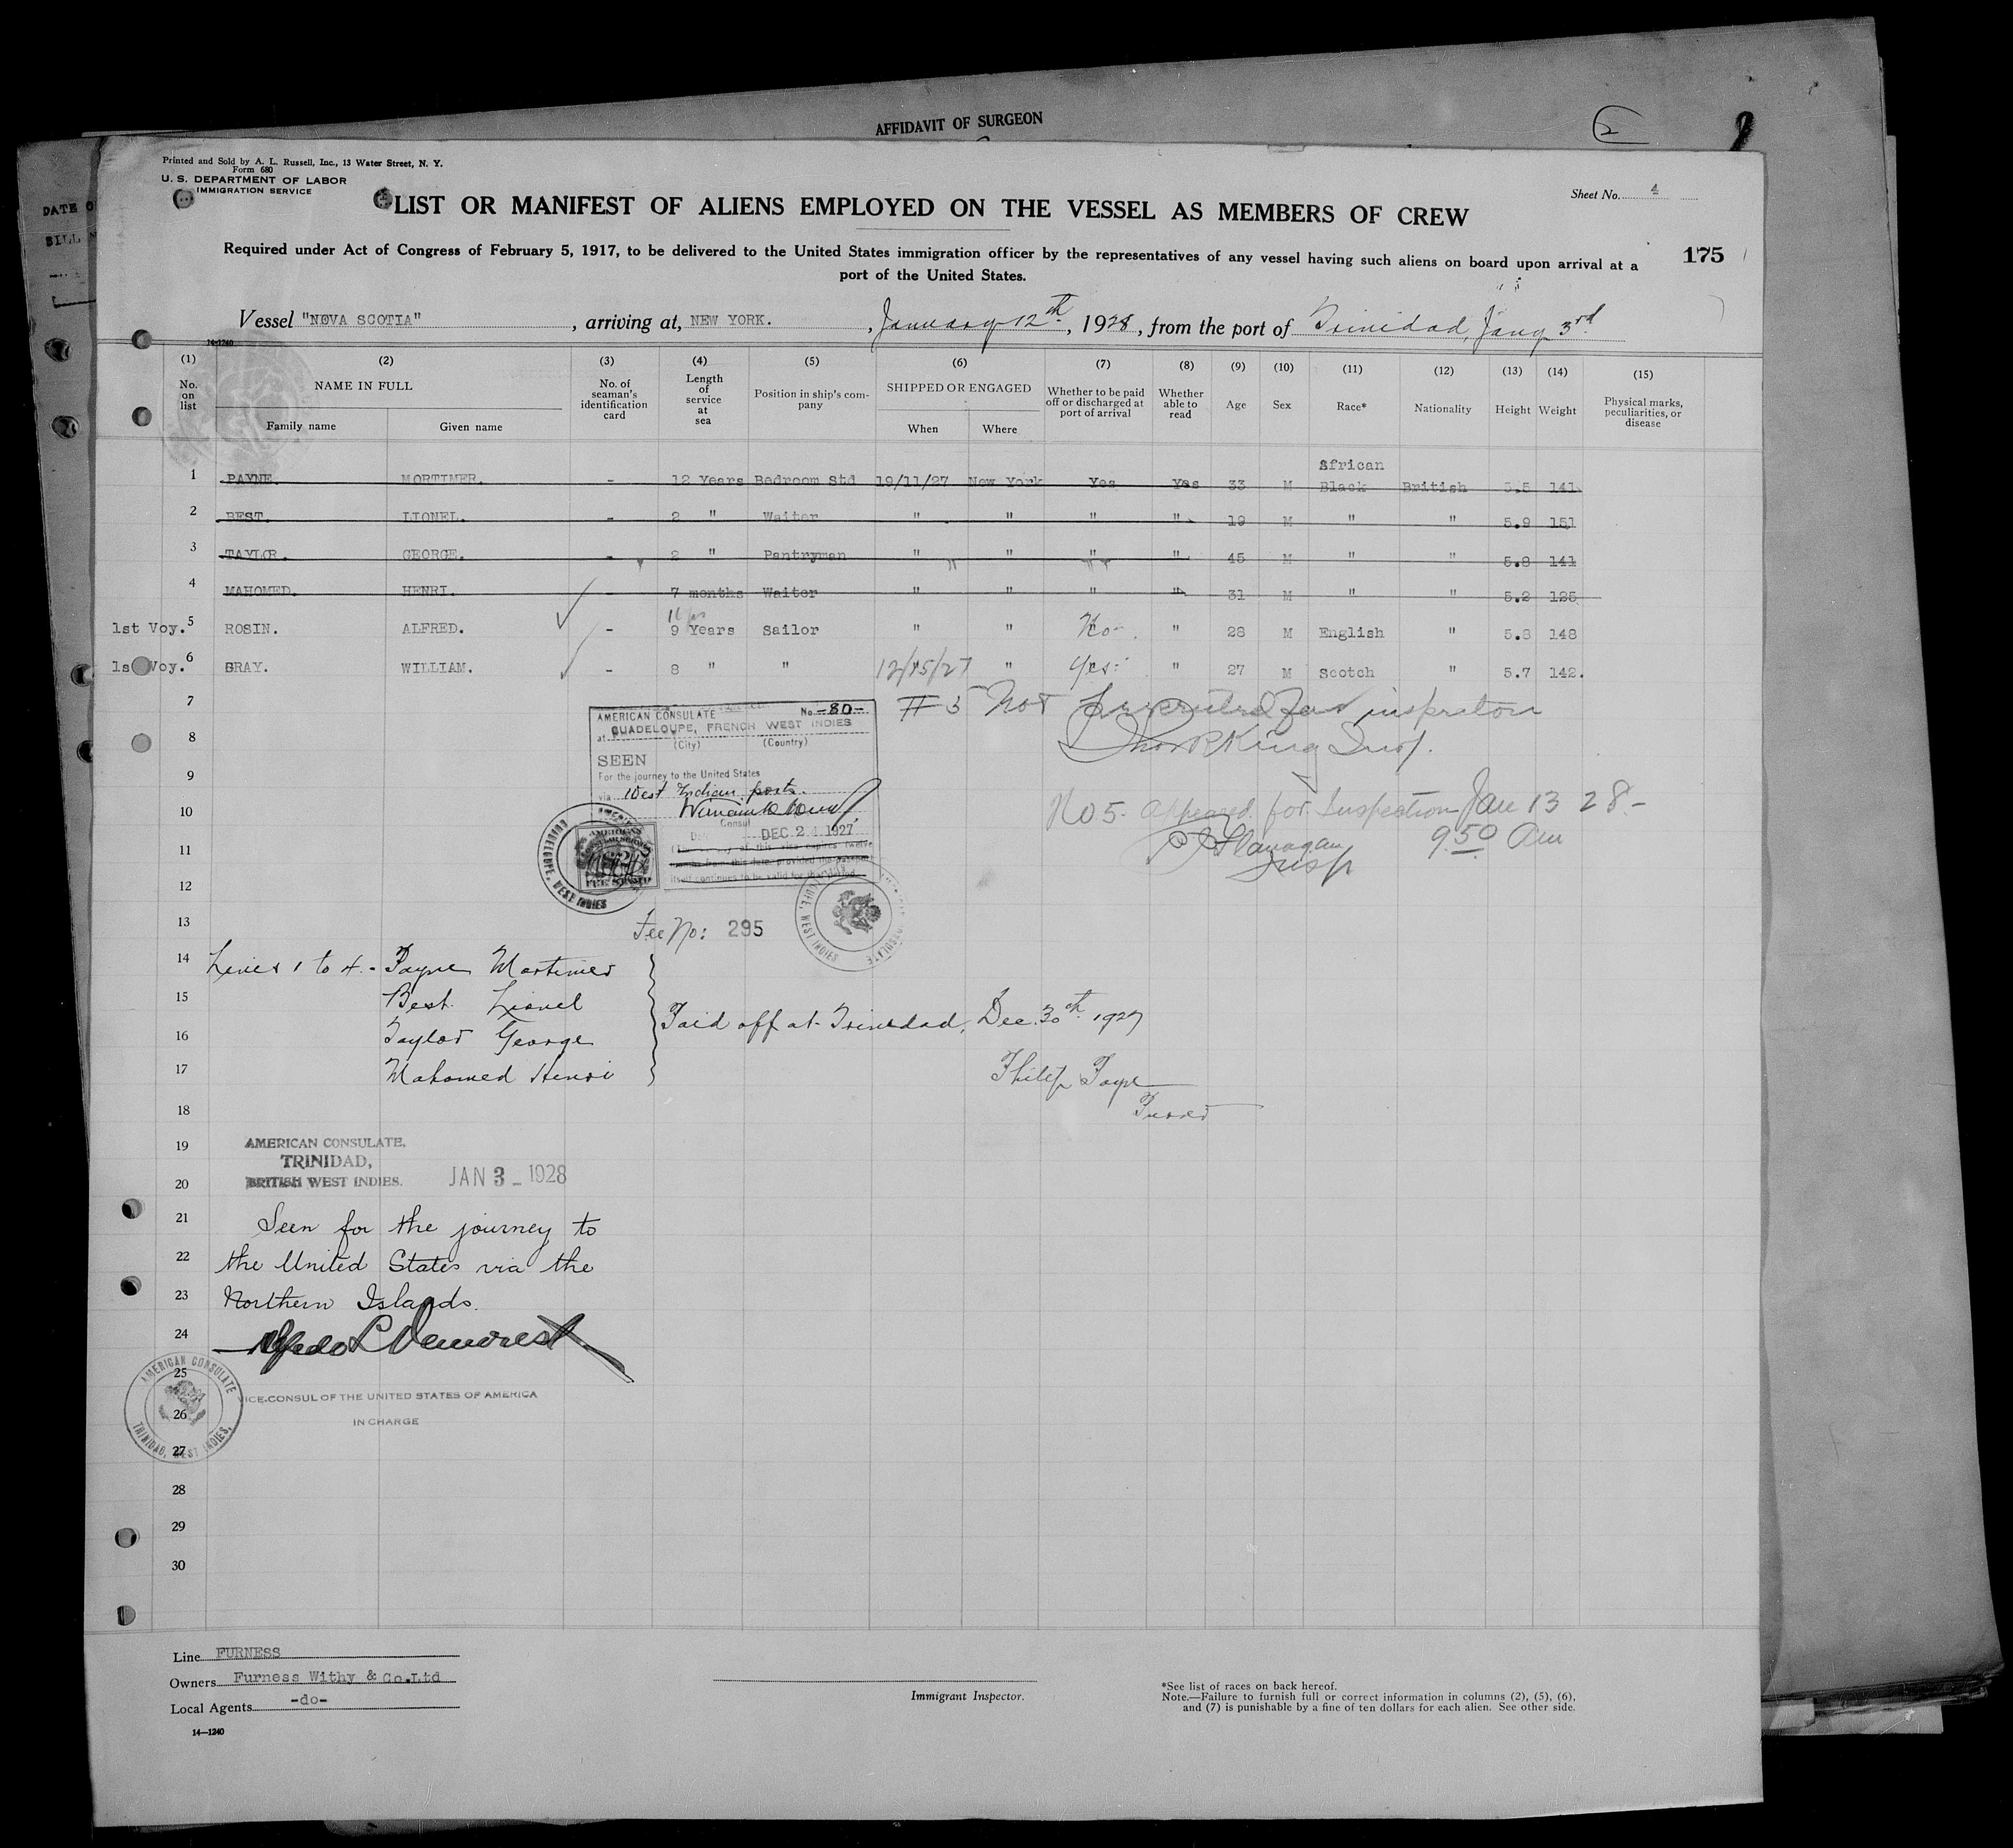 AFFIDAVIT OF SURGEON
2
DATE O
BILL
Printed and Sold by A. L. Russell, Inc., 13 Water Street, N. Y.
Form 680
U. S. DEPARTMENT OF LABOR
IMMIGRATION SERVICE
Sheet No. 4
LIST OR MANIFEST OF ALIENS EMPLOYED ON THE VESSEL AS MEMBERS OF CREW
Required under Act of Congress of February 5, 1917, to be delivered to the United States immigration officer by the representatives of any vessel having such aliens on board upon arrival at a
port of the United States.
175
Vessel "NOVA SCOTIA", arriving at, NEW YORK., January 12th, 1928, from the port of Trinidad, Jany 3rd
14-1240
(1) (2) (3) (4) (5) (6) (7) (8) (9) (10) (11) (12) (13) (14) (15)
No. on list NAME IN FULL No. of seaman's identification card Length of service at sea Position in ship's company SHIPPED OR ENGAGED Whether to be paid off or discharged at port of arrival Whether able to read Age Sex Race* Nationality Height Weight Physical marks, peculiarities, or disease
Family name Given name When Where
African
1 PAYNE. MORTIMER. - 12 Years Bedroom Std 19/11/27 New York Yes Yes 33 M Black British 5.5 141.
2 BEST. LIONEL. - 2 " Waiter " " " " 19 M " " 5.9 151
3 TAYLOR. GEORGE. - 2 " Pantryman " " " " 45 M " " 5.8 141
4 MAHOMED. HENRI. - 7 months Waiter " " " " 31 M " " 5.2 125
1st Voy. 5 ROSIN. ALFRED. - 9 Years Sailor " " No " 28 M English " 5.8 148
1s Voy. 6 GRAY. WILLIAM. - 8 " " 12/15/27 " Yes " 27 M Scotch " 5.7 142.
7 #5 Not presented for inspection
8 Thos R King Insp.
9
10 No 5. appeared for Inspection Jan 13 28-
9.50 Am
11 P J Flanagan
Insp
12
AMERICAN CONSULATE No. -80-
at GUADELOUPE, FRENCH WEST INDIES
(City) (Country)
SEEN
For the journey to the United States
via West Indian ports.
Consul
DEC 24 1927
itself continues to be valid for that period.
GUADELOUPE, WEST INDIES
13 Fee No: 295
14 Lines 1 to 4. - Payne Mortimer
15 Best. Lionel
Paid off at Trinidad, Dec. 30th 1927
16 Taylor George
17 Mahomed Henri
Philip Payne
18 Purser
19 AMERICAN CONSULATE,
TRINIDAD,
20 BRITISH WEST INDIES. JAN 3 - 1928
21 Seen for the journey to
22 the United States via the
23 Northern Islands.
24 Alfredo L Demorest
25
VICE-CONSUL OF THE UNITED STATES OF AMERICA
26 IN CHARGE
AMERICAN CONSULATE
TRINIDAD, WEST INDIES.
27
28
29
30
Line FURNESS
Owners Furness Withy & Co.Ltd
Local Agents -do-
14—1240
Immigrant Inspector.
*See list of races on back hereof.
Note.—Failure to furnish full or correct information in columns (2), (5), (6),
and (7) is punishable by a fine of ten dollars for each alien. See other side.